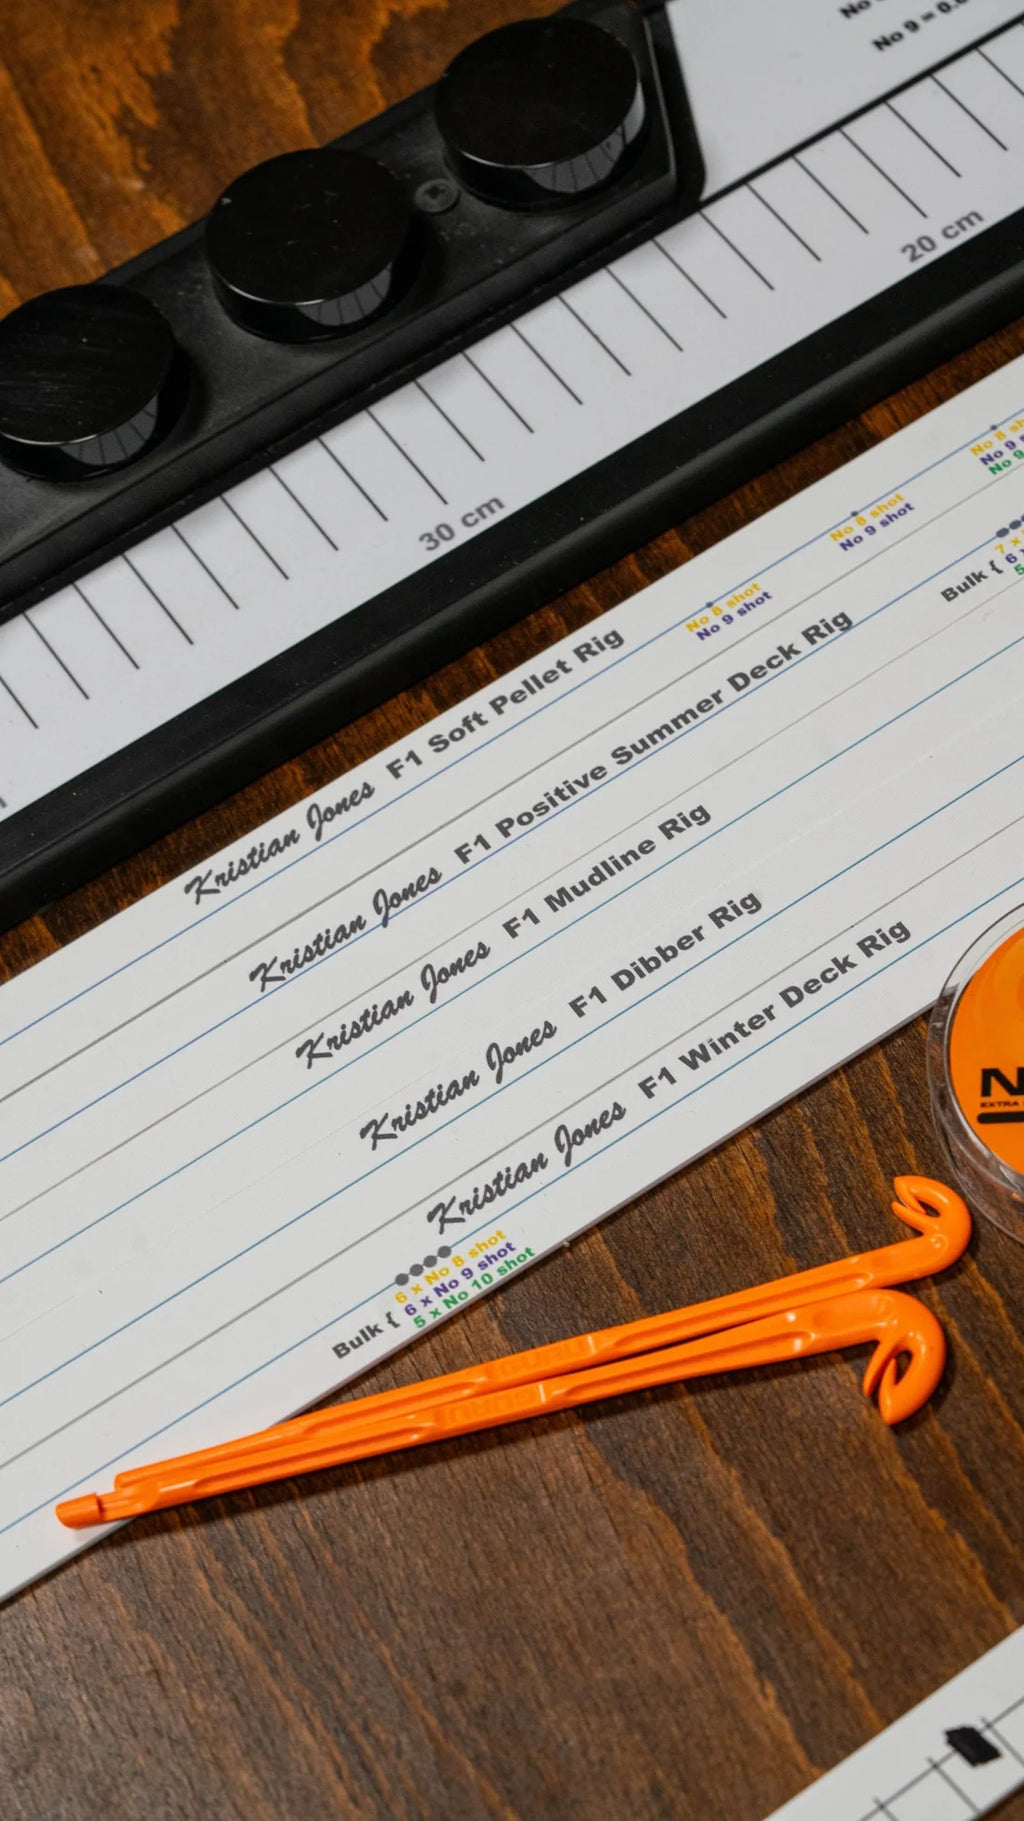 No 9 = 0.0
20 cm
30 cm
No 8 shot
No 9
No 9
No 8 shot
No 9 shot
No 8 shot
No 9 shot
Bulk {
7 x
6
5
Kristian Jones F1 Soft Pellet Rig
Kristian Jones F1 Positive Summer Deck Rig
Kristian Jones F1 Mudline Rig
Kristian Jones F1 Dibber Rig
Kristian Jones F1 Winter Deck Rig
Bulk {
6 x No 8 shot
6 x No 9 shot
5 x No 10 shot
EXTRA
GURU
GURU